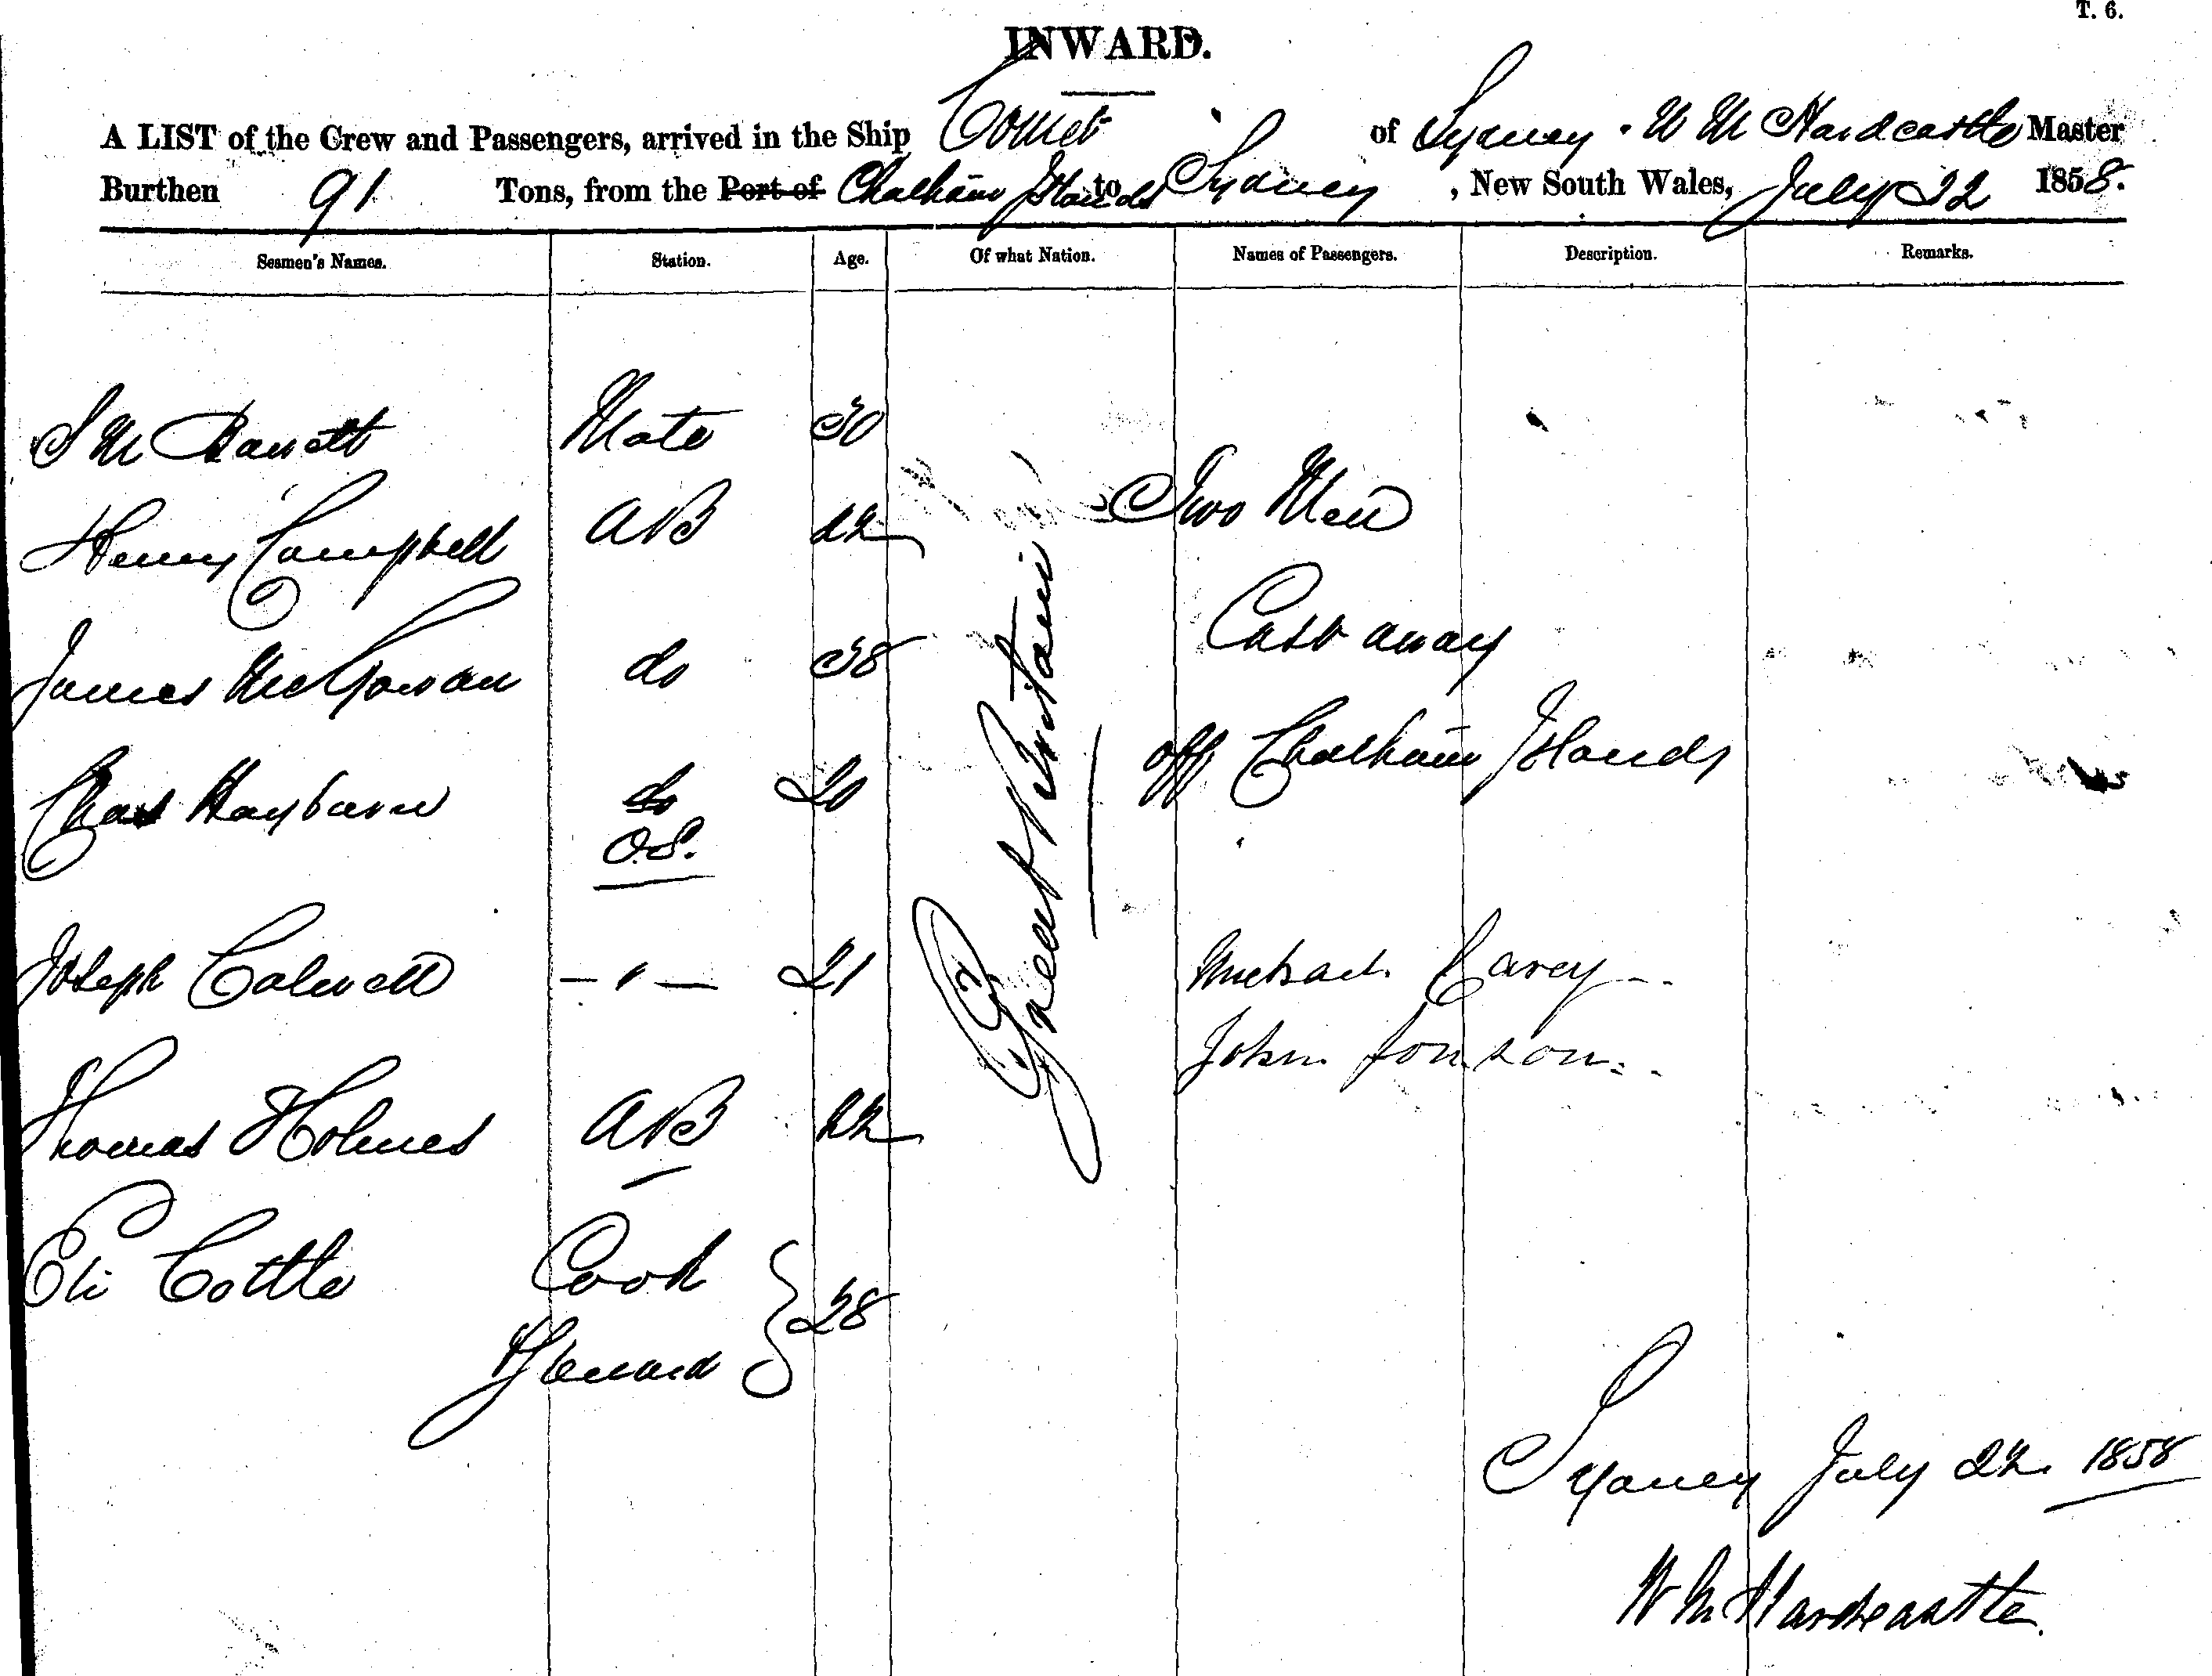 T. 6.
INWARD.
A LIST of the Crew and Passengers, arrived in the Ship Comet of Sydney . W M Hardcastle Master
Burthen 91 Tons, from the Port of Chatham Islands to Sydney , New South Wales, July 22 1858.
Seamen's Names. Station. Age. Of what Nation. Names of Passengers. Description. Remarks.
Mate 30
Henry Campbell AB 22 Two Men
James McGowan do 38 Cast away
Chas do 20 off Chatham Islands
O.S.
Great Britain
Joseph Calwell — " — 21 Michael Carey
John Jonson
Thomas Holmes AB 22
Eli Cottle Cook
Steward } 28
Sydney July 22. 1858
W M Hardcastle.